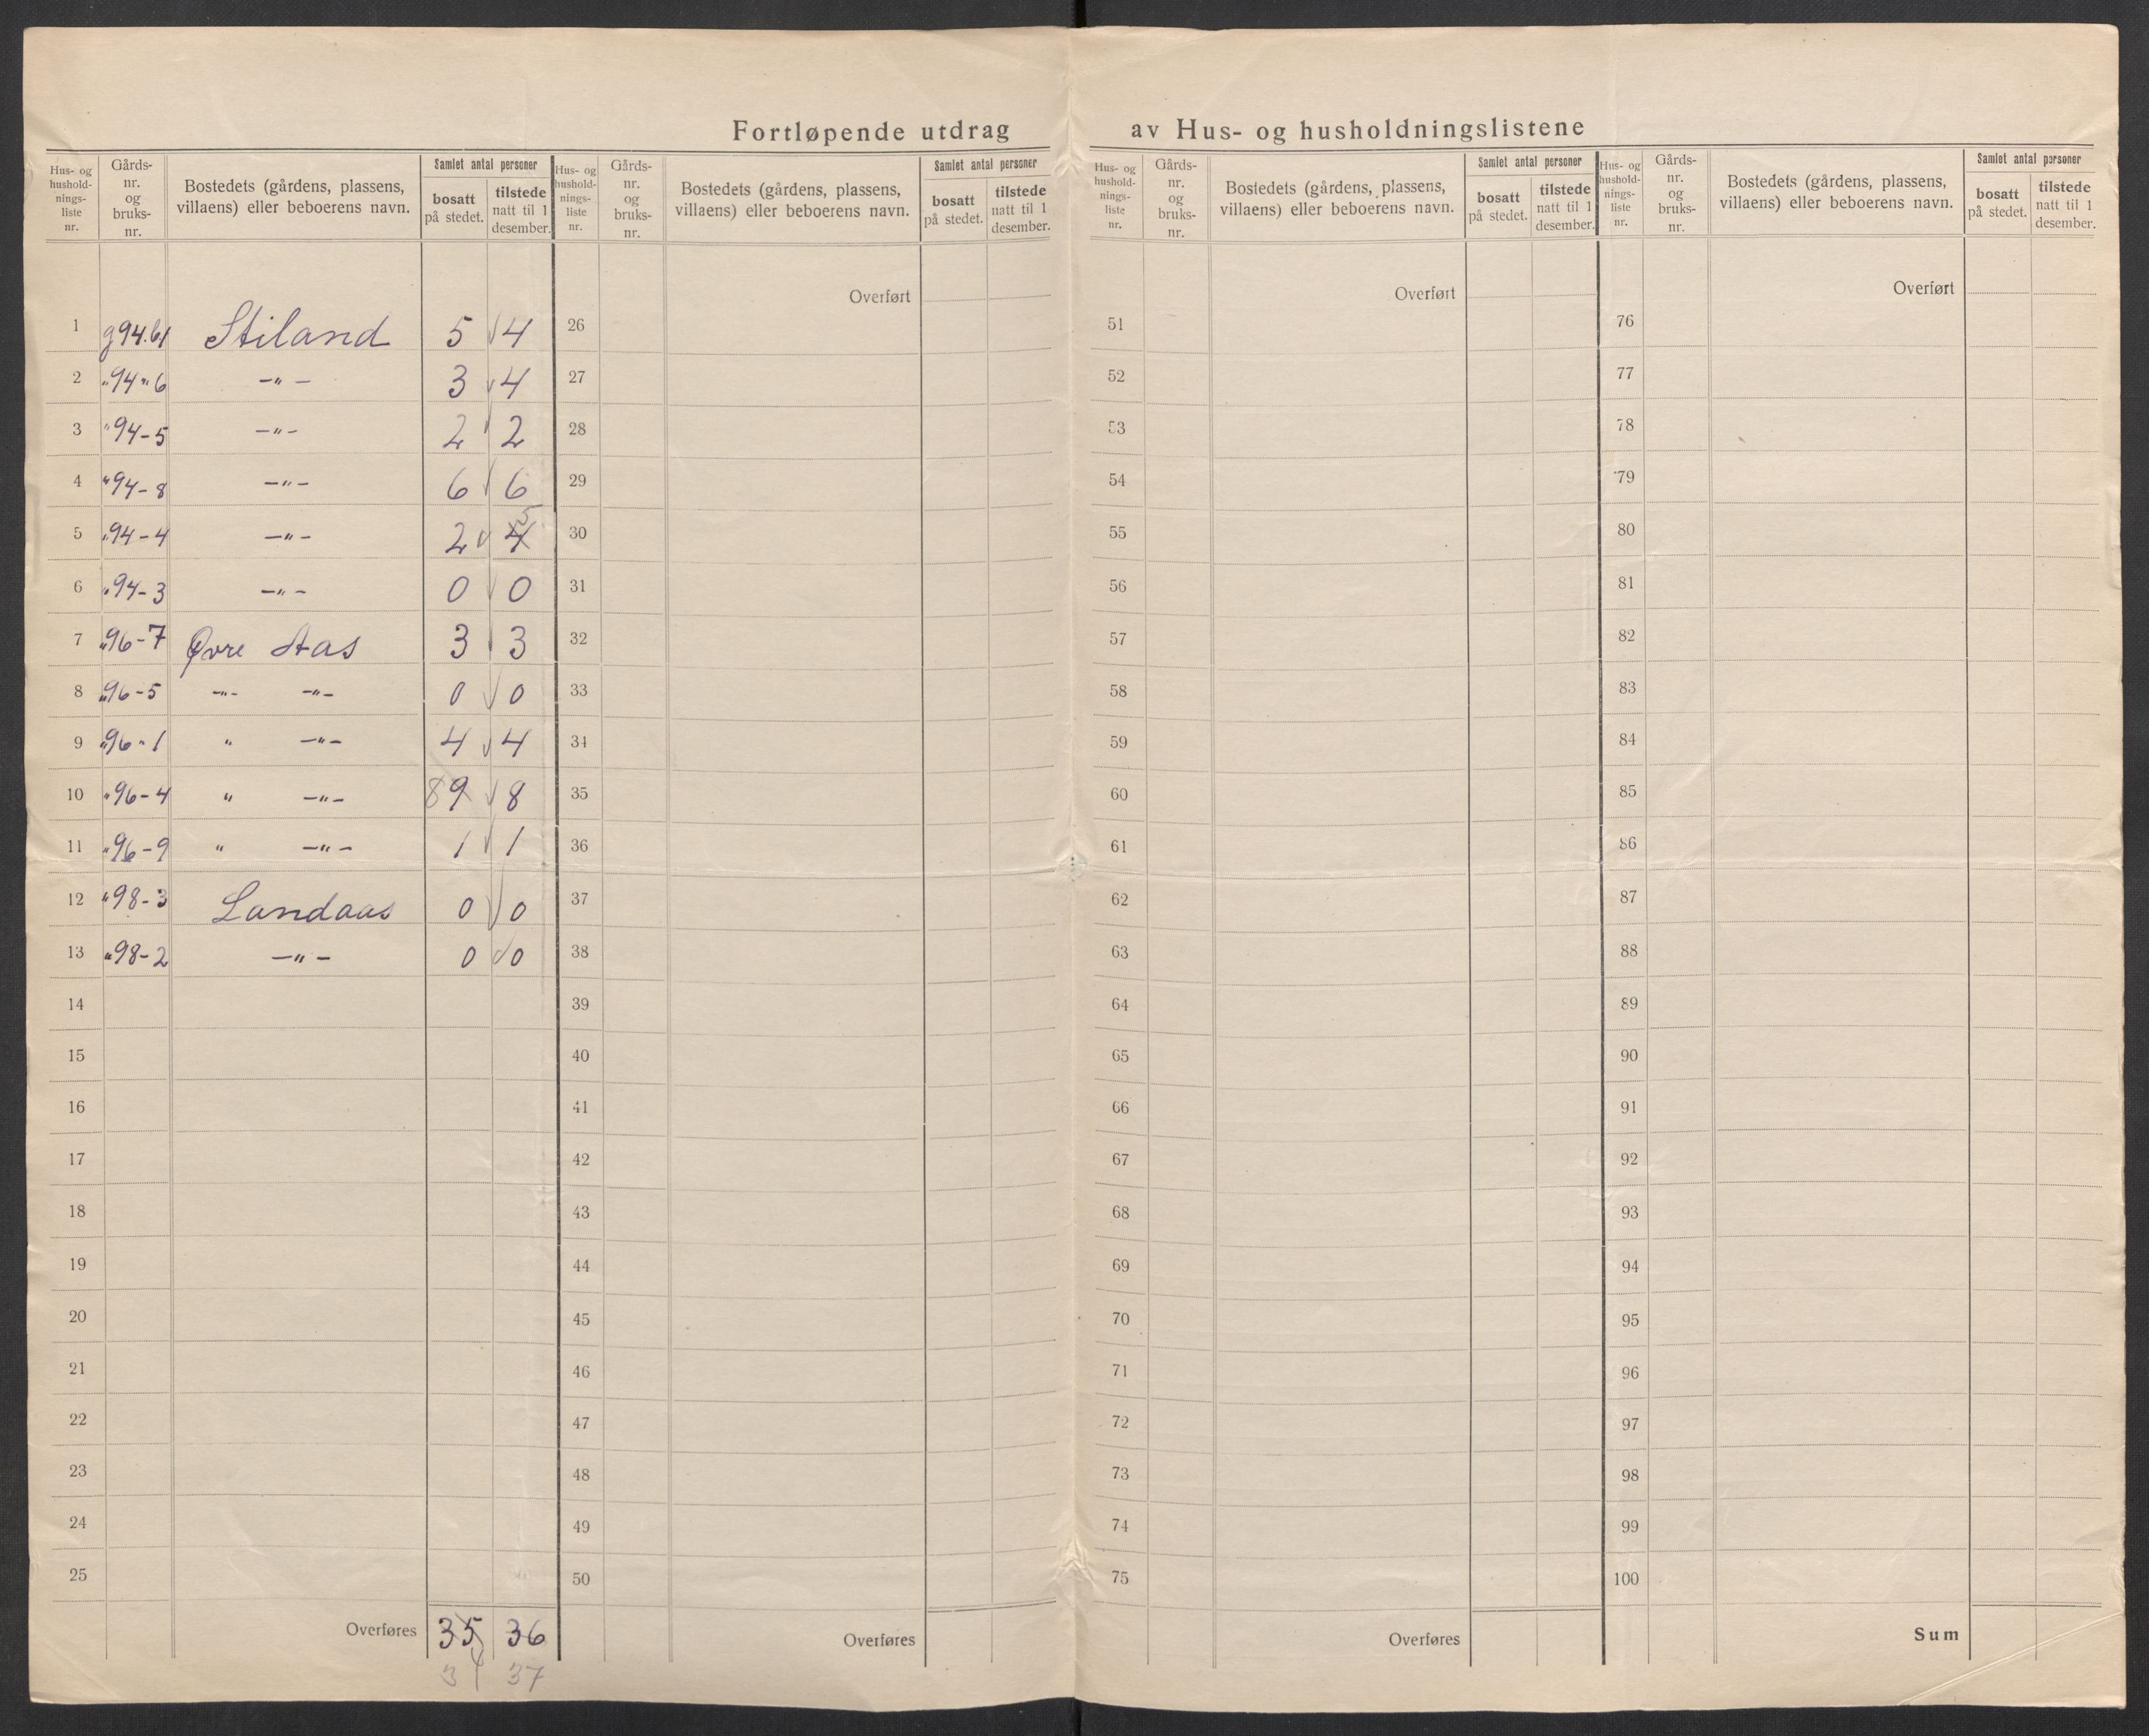 Fortløpende utdrag av Hus- og husholdningslistene
Hus- og hushold- nings- liste nr. | Gårds- nr. og bruks- nr. | Bostedets (gårdens, plassens, villaens) eller beboerens navn. | Samlet antal personer | bosatt på stedet. | tilstede natt til 1 desember.
1 g 94.b1 Stiland 5 √ 4
2 „ 94 „ 6 —„— 3 √ 4
3 „ 94-5 —„— 2 √ 2
4 „ 94-8 —„— 6 √ 6
5 „ 94-4 —„— 2 √ 4 5
6 „ 94-3 —„— 0 √ 0
7 „ 96-7 Øvre Aas 3 √ 3
8 „ 96-5 —„— —„— 0 √ 0
9 „ 96-1 „ —„— 4 √ 4
10 „ 96-4 „ —„— 8 9 √ 8
11 „ 96-9 „ —„— 1 √ 1
12 „ 98-3 Landaas 0 √ 0
13 „ 98-2 —„— 0 √ 0
14
15
16
17
18
19
20
21
22
23
24
25
Overføres 35 36
34 37
Hus- og hushold- nings- liste nr. | Gårds- nr. og bruks- nr. | Bostedets (gårdens, plassens, villaens) eller beboerens navn. | Samlet antal personer | bosatt på stedet. | tilstede natt til 1 desember.
Overført
26
27
28
29
30
31
32
33
34
35
36
37
38
39
40
41
42
43
44
45
46
47
48
49
50
Overføres
Hus- og hushold- nings- liste nr. | Gårds- nr. og bruks- nr. | Bostedets (gårdens, plassens, villaens) eller beboerens navn. | Samlet antal personer | bosatt på stedet. | tilstede natt til 1 desember.
Overført
51
52
53
54
55
56
57
58
59
60
61
62
63
64
65
66
67
68
69
70
71
72
73
74
75
Overføres
Hus- og hushold- nings- liste nr. | Gårds- nr. og bruks- nr. | Bostedets (gårdens, plassens, villaens) eller beboerens navn. | Samlet antal personer | bosatt på stedet. | tilstede natt til 1 desember.
Overført
76
77
78
79
80
81
82
83
84
85
86
87
88
89
90
91
92
93
94
95
96
97
98
99
100
Sum